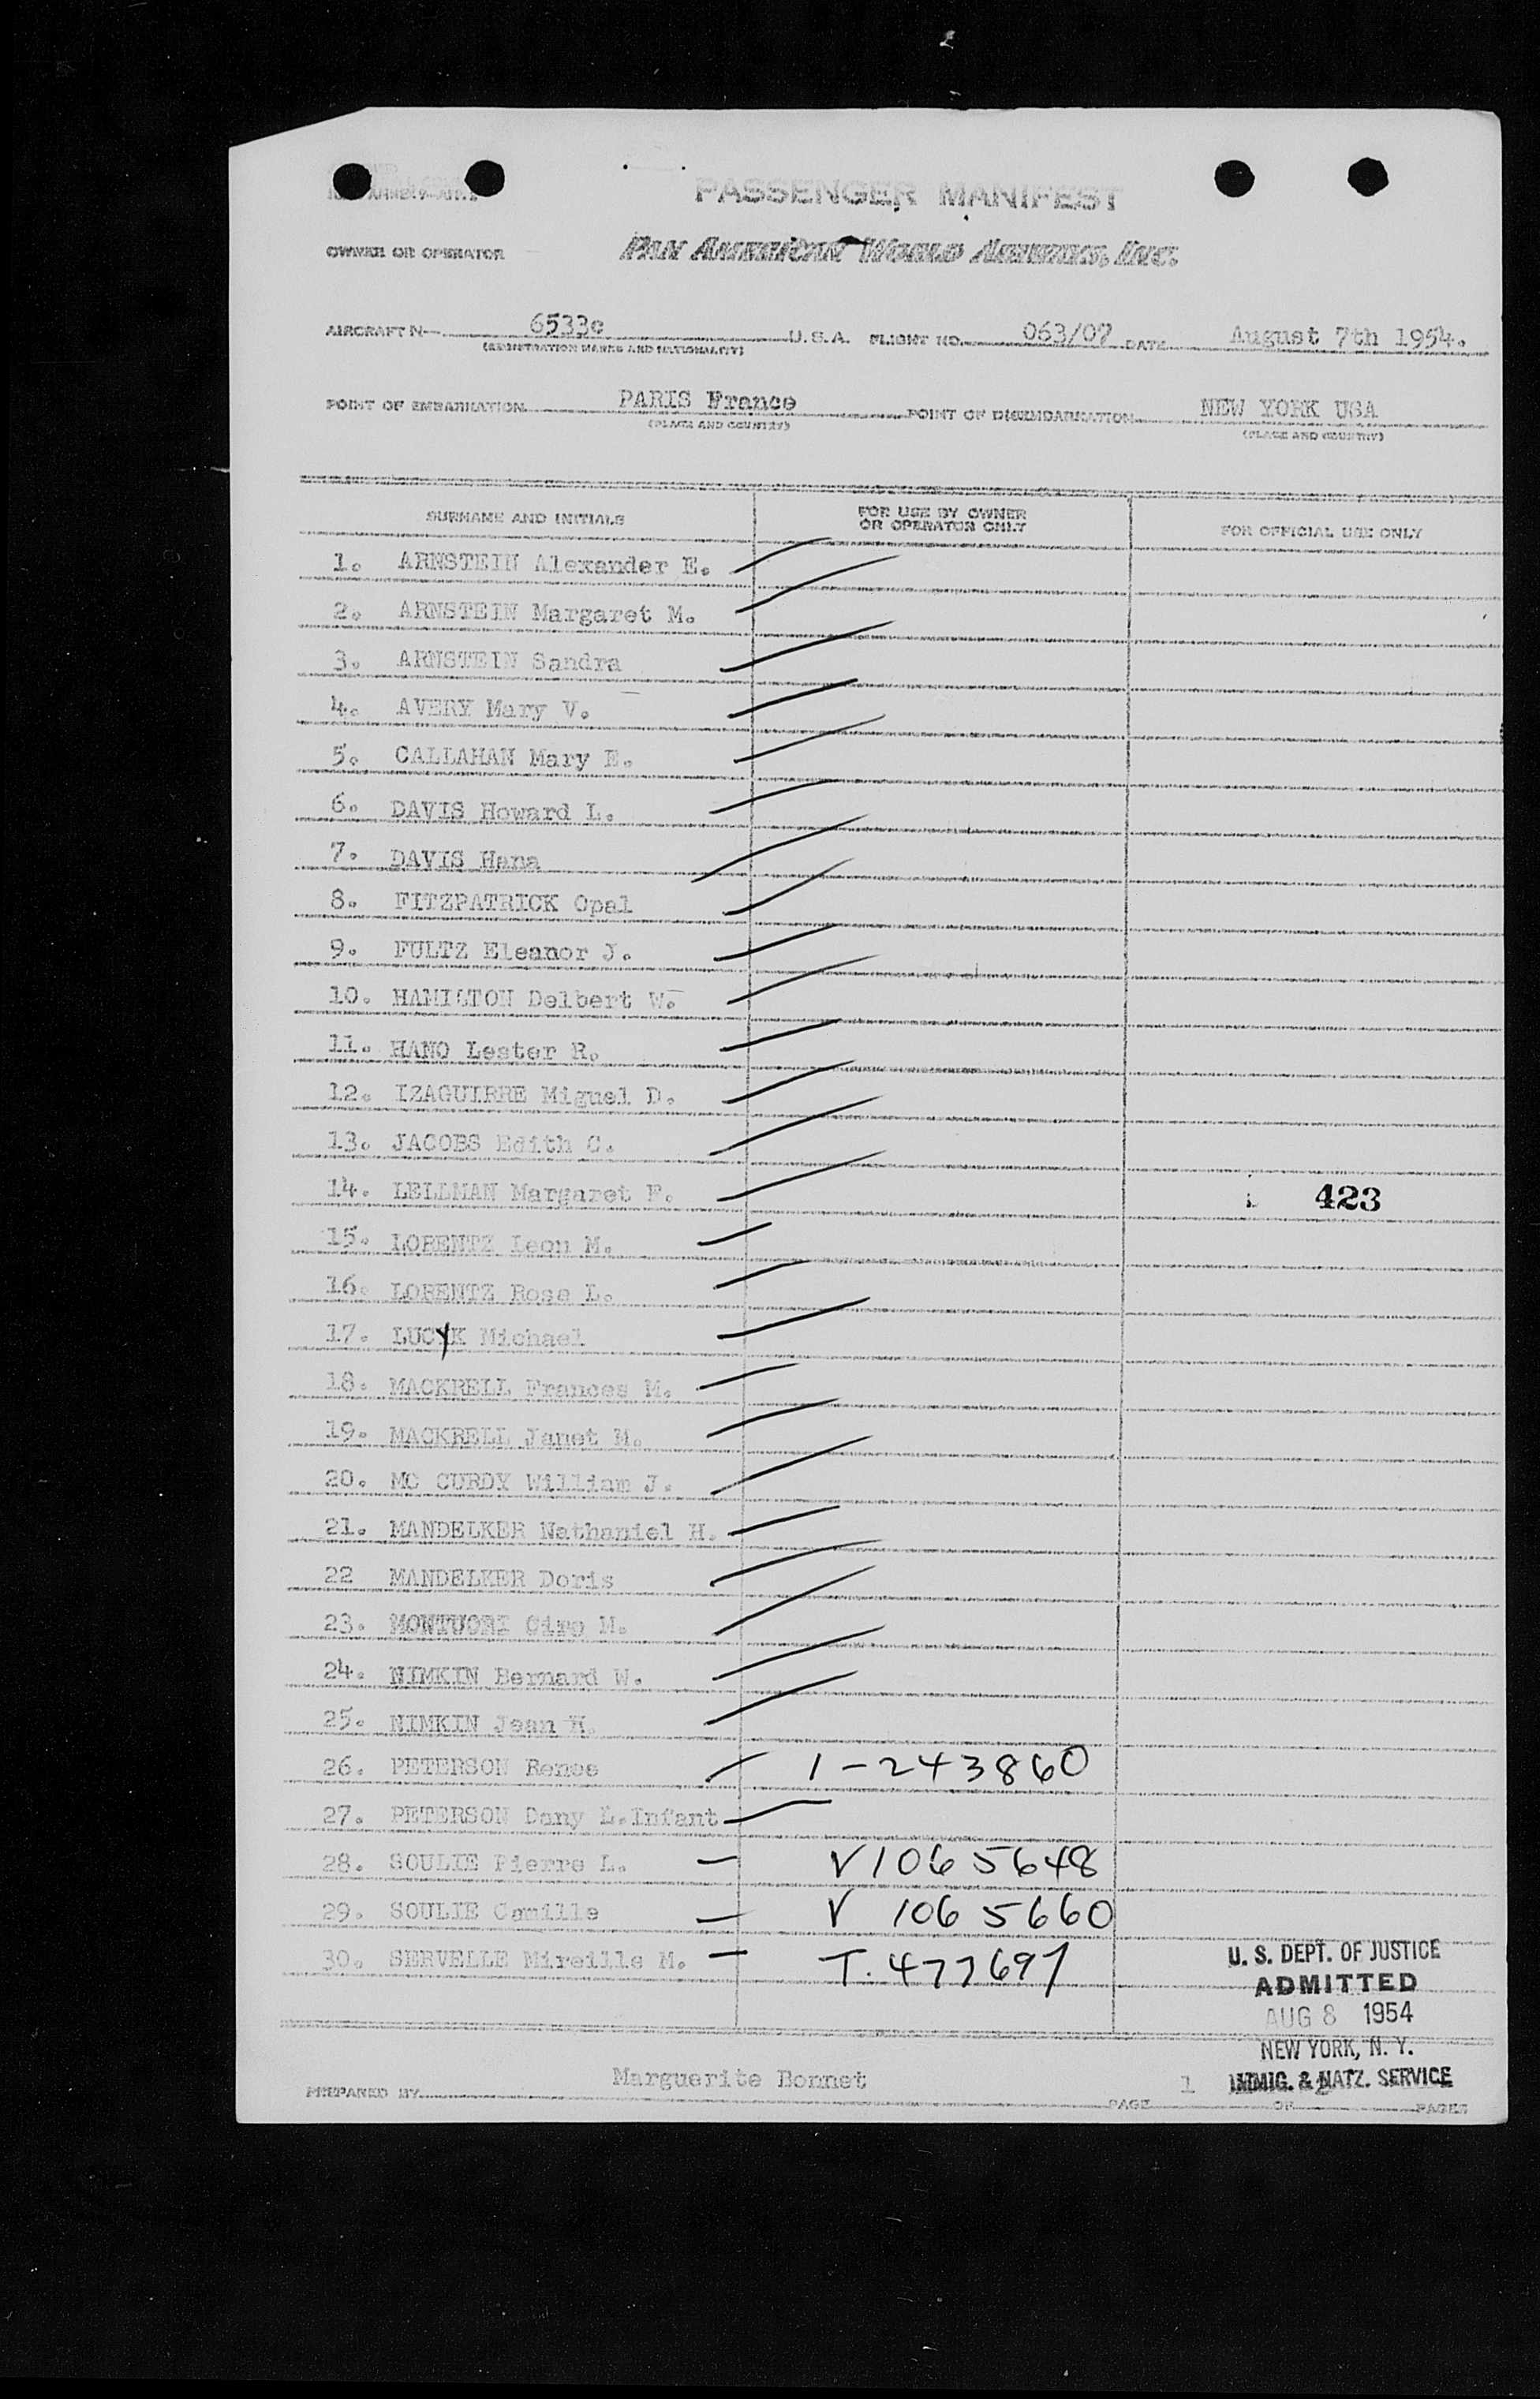 PASSENGER MANIFEST
OWNER OR OPERATOR PAN AMERICAN WORLD AIRWAYS, INC.
AIRCRAFT N 6533c U.S.A. FLIGHT NO. 063/07 DATE August 7th 1954.
(REGISTRATION MARKS AND NATIONALITY)
POINT OF EMBARKATION PARIS France POINT OF DISEMBARKATION NEW YORK USA
(PLACE AND COUNTRY) (PLACE AND COUNTRY)
SURNAME AND INITIALS FOR USE BY OWNER OR OPERATOR ONLY FOR OFFICIAL USE ONLY
1. ARNSTEIN Alexander E.
2. ARNSTEIN Margaret M.
3. ARNSTEIN Sandra
4. AVERY Mary V.
5. CALLAHAN Mary E.
6. DAVIS Howard L.
7. DAVIS Hana
8. FITZPATRICK Opal
9. FULTZ Eleanor J.
10. HAMILTON Delbert W.
11. HANO Lester R.
12. IZAGUIRRE Miguel D.
13. JACOBS Edith C.
14. LELLMAN Margaret F. 423
15. LORENTZ Leon M.
16. LORENTZ Rose L.
17. LUCYK Michael
18. MACKRELL Frances M.
19. MACKRELL Janet M.
20. MC CURDY William J.
21. MANDELKER Nathaniel H.
22 MANDELKER Doris
23. MONTUORI Ciro M.
24. NIMKIN Bernard W.
25. NIMKIN Jean H.
26. PETERSON Renee 1-243860
27. PETERSON Dany L.Infant
28. SOULIE Pierre L. V1065648
29. SOULIE Camille V 1065660
30. SERVELLE Mireille M. T. 477697
U. S. DEPT. OF JUSTICE
ADMITTED
AUG 8 1954
NEW YORK, N. Y.
IMMIG. & NATZ. SERVICE
PREPARED BY Marguerite Bonnet PAGE 1 OF PAGES